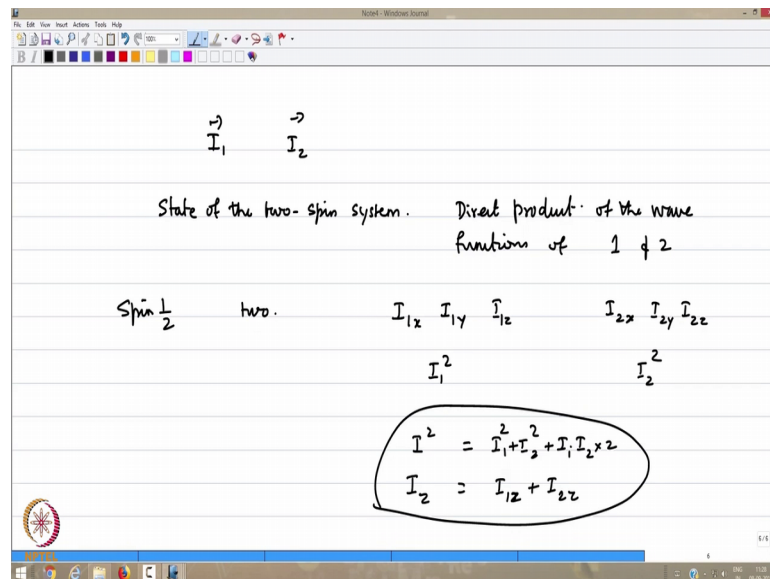 Note4 - Windows Journal
File Edit View Insert Actions Tools Help
100%
B I
I⃗₁ I⃗₂
State of the two-spin system. Direct product of the wave
functions of 1 & 2
Spin 1/2 two. I₁ₓ I₁ᵧ I₁z I₂ₓ I₂ᵧ I₂z
I₁² I₂²
I² = I₁²+I₂²+I₁.I₂×2
Iz = I₁z + I₂z
6/6
NPTEL
6
ENG 11:28